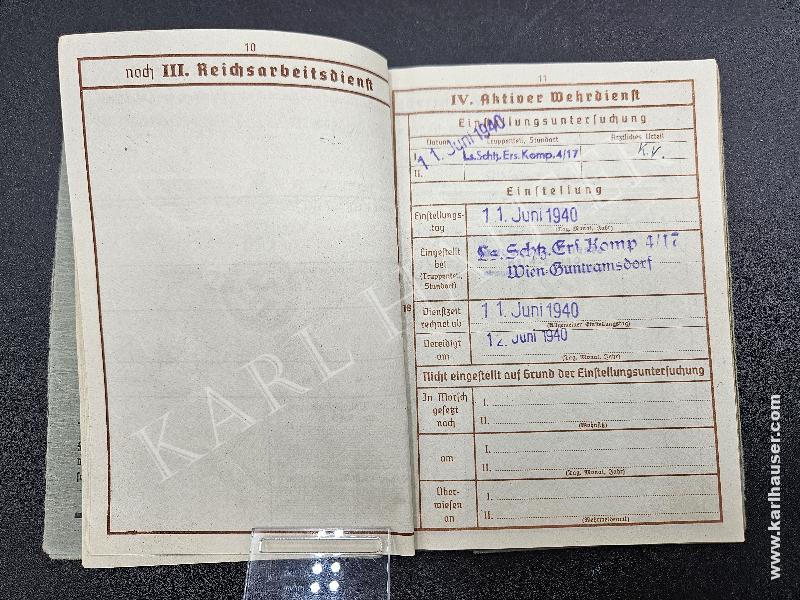 10
noch III. Reichsarbeitsdienst
11
IV. Aktiver Wehrdienst
Einstellungsuntersuchung
Datum
Truppenteil, Standort
Ärztliches Urteil
I.
11. Juni 1940
Ls.Schtz.Ers.Komp.4/17
k.v.
II.
Einstellung
Einstellungs-
tag
11. Juni 1940
(Tag, Monat, Jahr)
Eingestellt
bei
(Truppenteil,
Standort)
Ls. Schtz. Ers. Komp 4/17
Wien-Guntramsdorf
18
Dienstzeit
rechnet ab
11. Juni 1940
(Allgemeiner Einstellungstag)
Vereidigt
am
12. Juni 1940
(Tag, Monat, Jahr)
Nicht eingestellt auf Grund der Einstellungsuntersuchung
In Marsch
gesetzt
nach
I.
II.
(Wohnsitz)
am
I.
II.
(Tag, Monat, Jahr)
Über-
wiesen
an
I.
II.
(Wehrmeldeamt)
KARL HAUSER
www.karlhauser.com